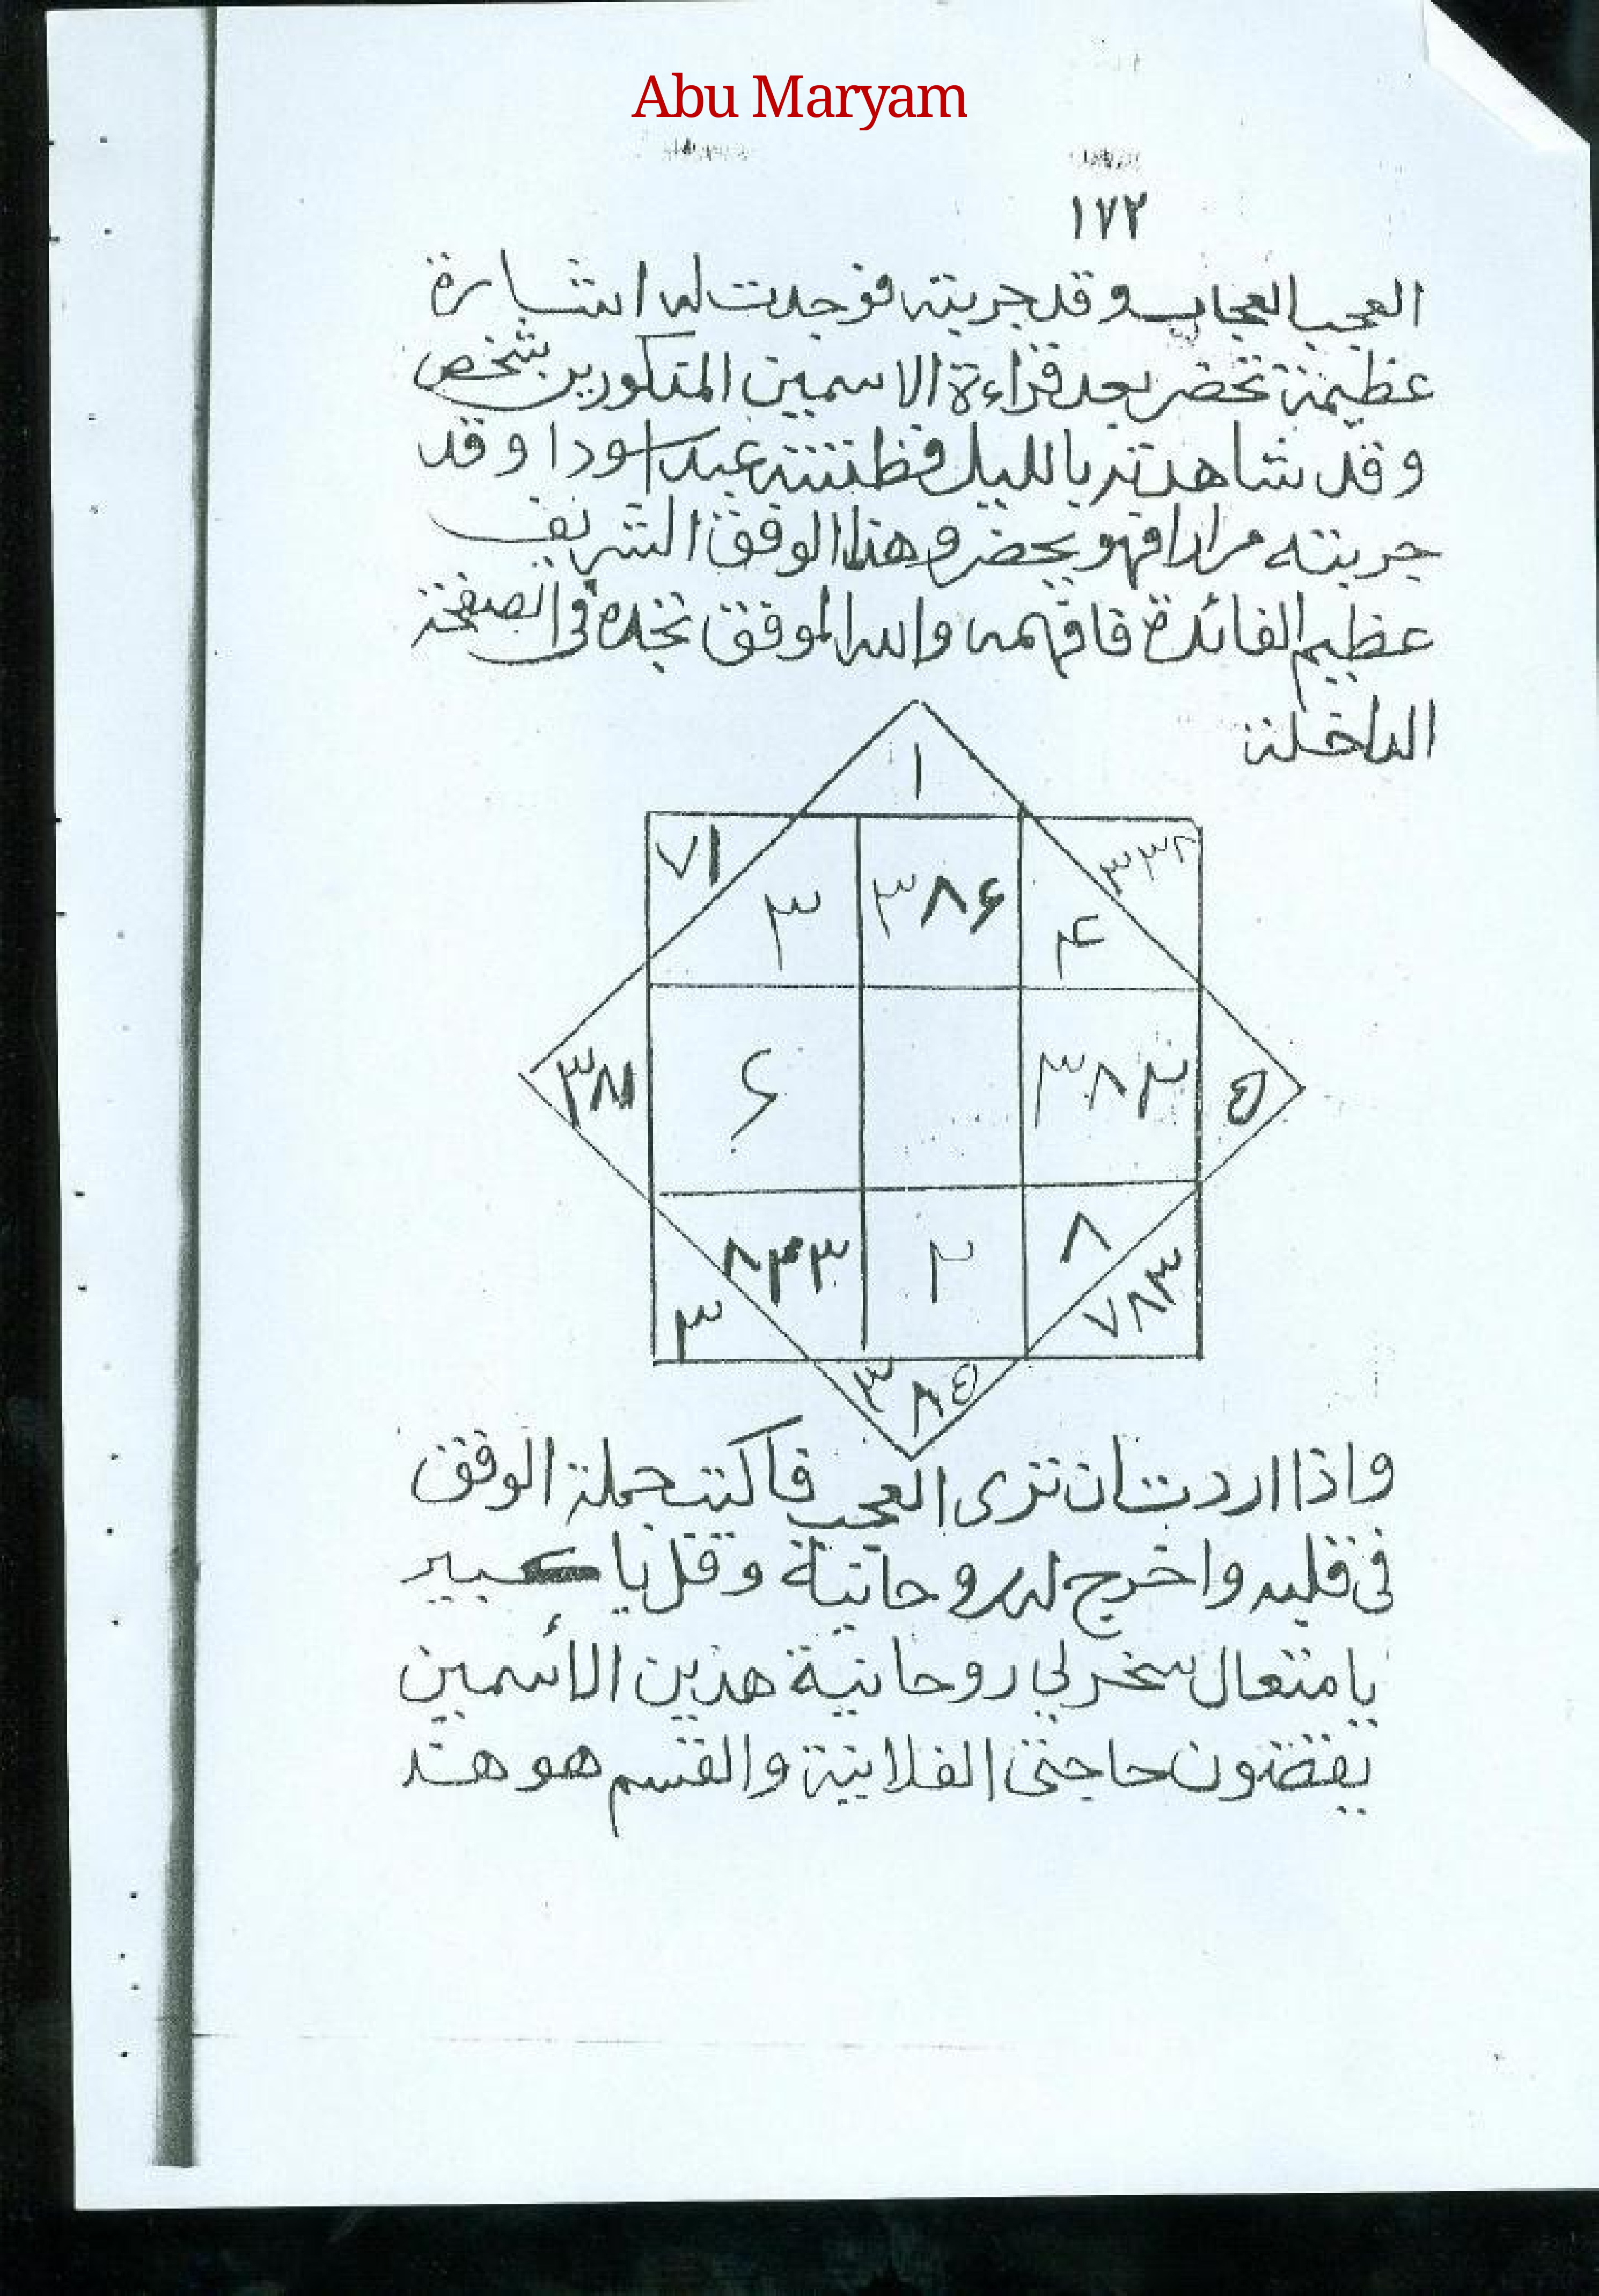 Abu Maryam
١٧٢
العجب العجاب وقد جربته فوجدت له اشارة
عظيمة تحضر بعد قراءة الاسمين المذكورين بشخص
وقد شاهدته بالليل فظننته عبد اسودا وقد
جربته مرارا فهو يحضر وهذا الوفق الشريف
عظيم الفائدة فافهمه والله الموفق تجده فى الصفحة
الداخلة
١
٧١
٣٣٢
٣
٣٨۶
۴
٣٨١
۶
٥
٨٣٣
٢
٨
٣
٧٨٣
٣٨٥
واذا اردت ان ترى العجب فاكتب جملة الوفق
فى قلبه واخرج له روحانية وقل يا كبير
يا متعال سخر لي روحانية هذين الأسمين
يقضون حاجتى الفلانية والقسم هو هند